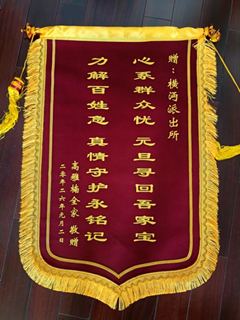 赠：横沔派出所
心系群众忧 元旦寻回吾家宝
力解百姓急 真情守护永铭记
高雅楠全家 敬赠
二零二六年元月二日